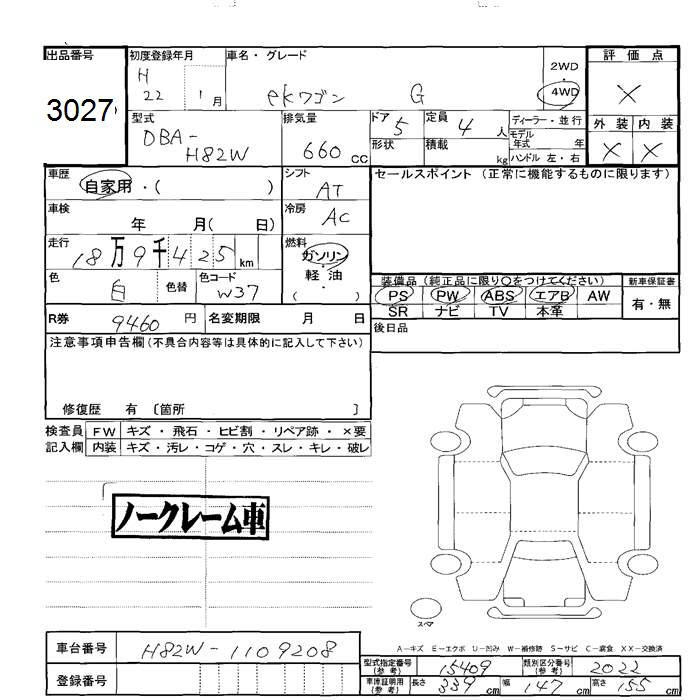 出品番号 初度登録年月 車名・グレード 評価点
3027 H 22 1月 ekワゴン G 2WD・4WD ×
型式 排気量 ドア 定員 ディーラー・並行 外装 内装
DBA-H82W 660cc 5 4人 モデル年式 年 × ×
形状 積載 kg ハンドル 左・右
車歴 シフト セールスポイント (正常に機能するものに限ります)
自家用・( ) AT
車検 冷房
年 月( 日) AC
走行 燃料
18万9千425km ガソリン・軽油
色 色替 色コード ( ・ ) 装備品 (純正品に限り○をつけてください) 新車保証書
白 W37 PS PW ABS エアB AW 有・無
SR ナビ TV 本革
R券 9460円 名変期限 月 日 後日品
注意事項申告欄(不具合内容等は具体的に記入して下さい)
修復歴 有 〔箇所 〕
検査員 FW キズ・飛石・ヒビ割・リペア跡・×要
記入欄 内装 キズ・汚レ・コゲ・穴・スレ・キレ・破レ
ノークレーム車
スペア
A-キズ E-エクボ U-凹み W-補修跡 S-サビ C-腐食 XX-交換済
車台番号 H82W-1109208 型式指定番号(参考) 15409 類別区分番号(参考) 2022
登録番号 車庫証明用(参考) 長さ 339cm 幅 147cm 高さ 155cm